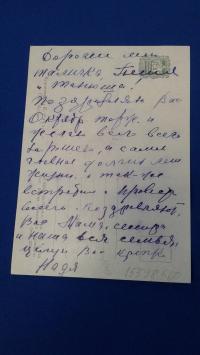 Дорогие мои
Томичка, Гения
и Танюша!
Поздравляю Вас
Октябр торж. и
желаю всего всего
хорошего, а самое
главное долгих лет
жизни. и также
встретить и провар
Поздравляют
Вас Мама, сестра
и наша вся семья
целую Вас крепко
Надя